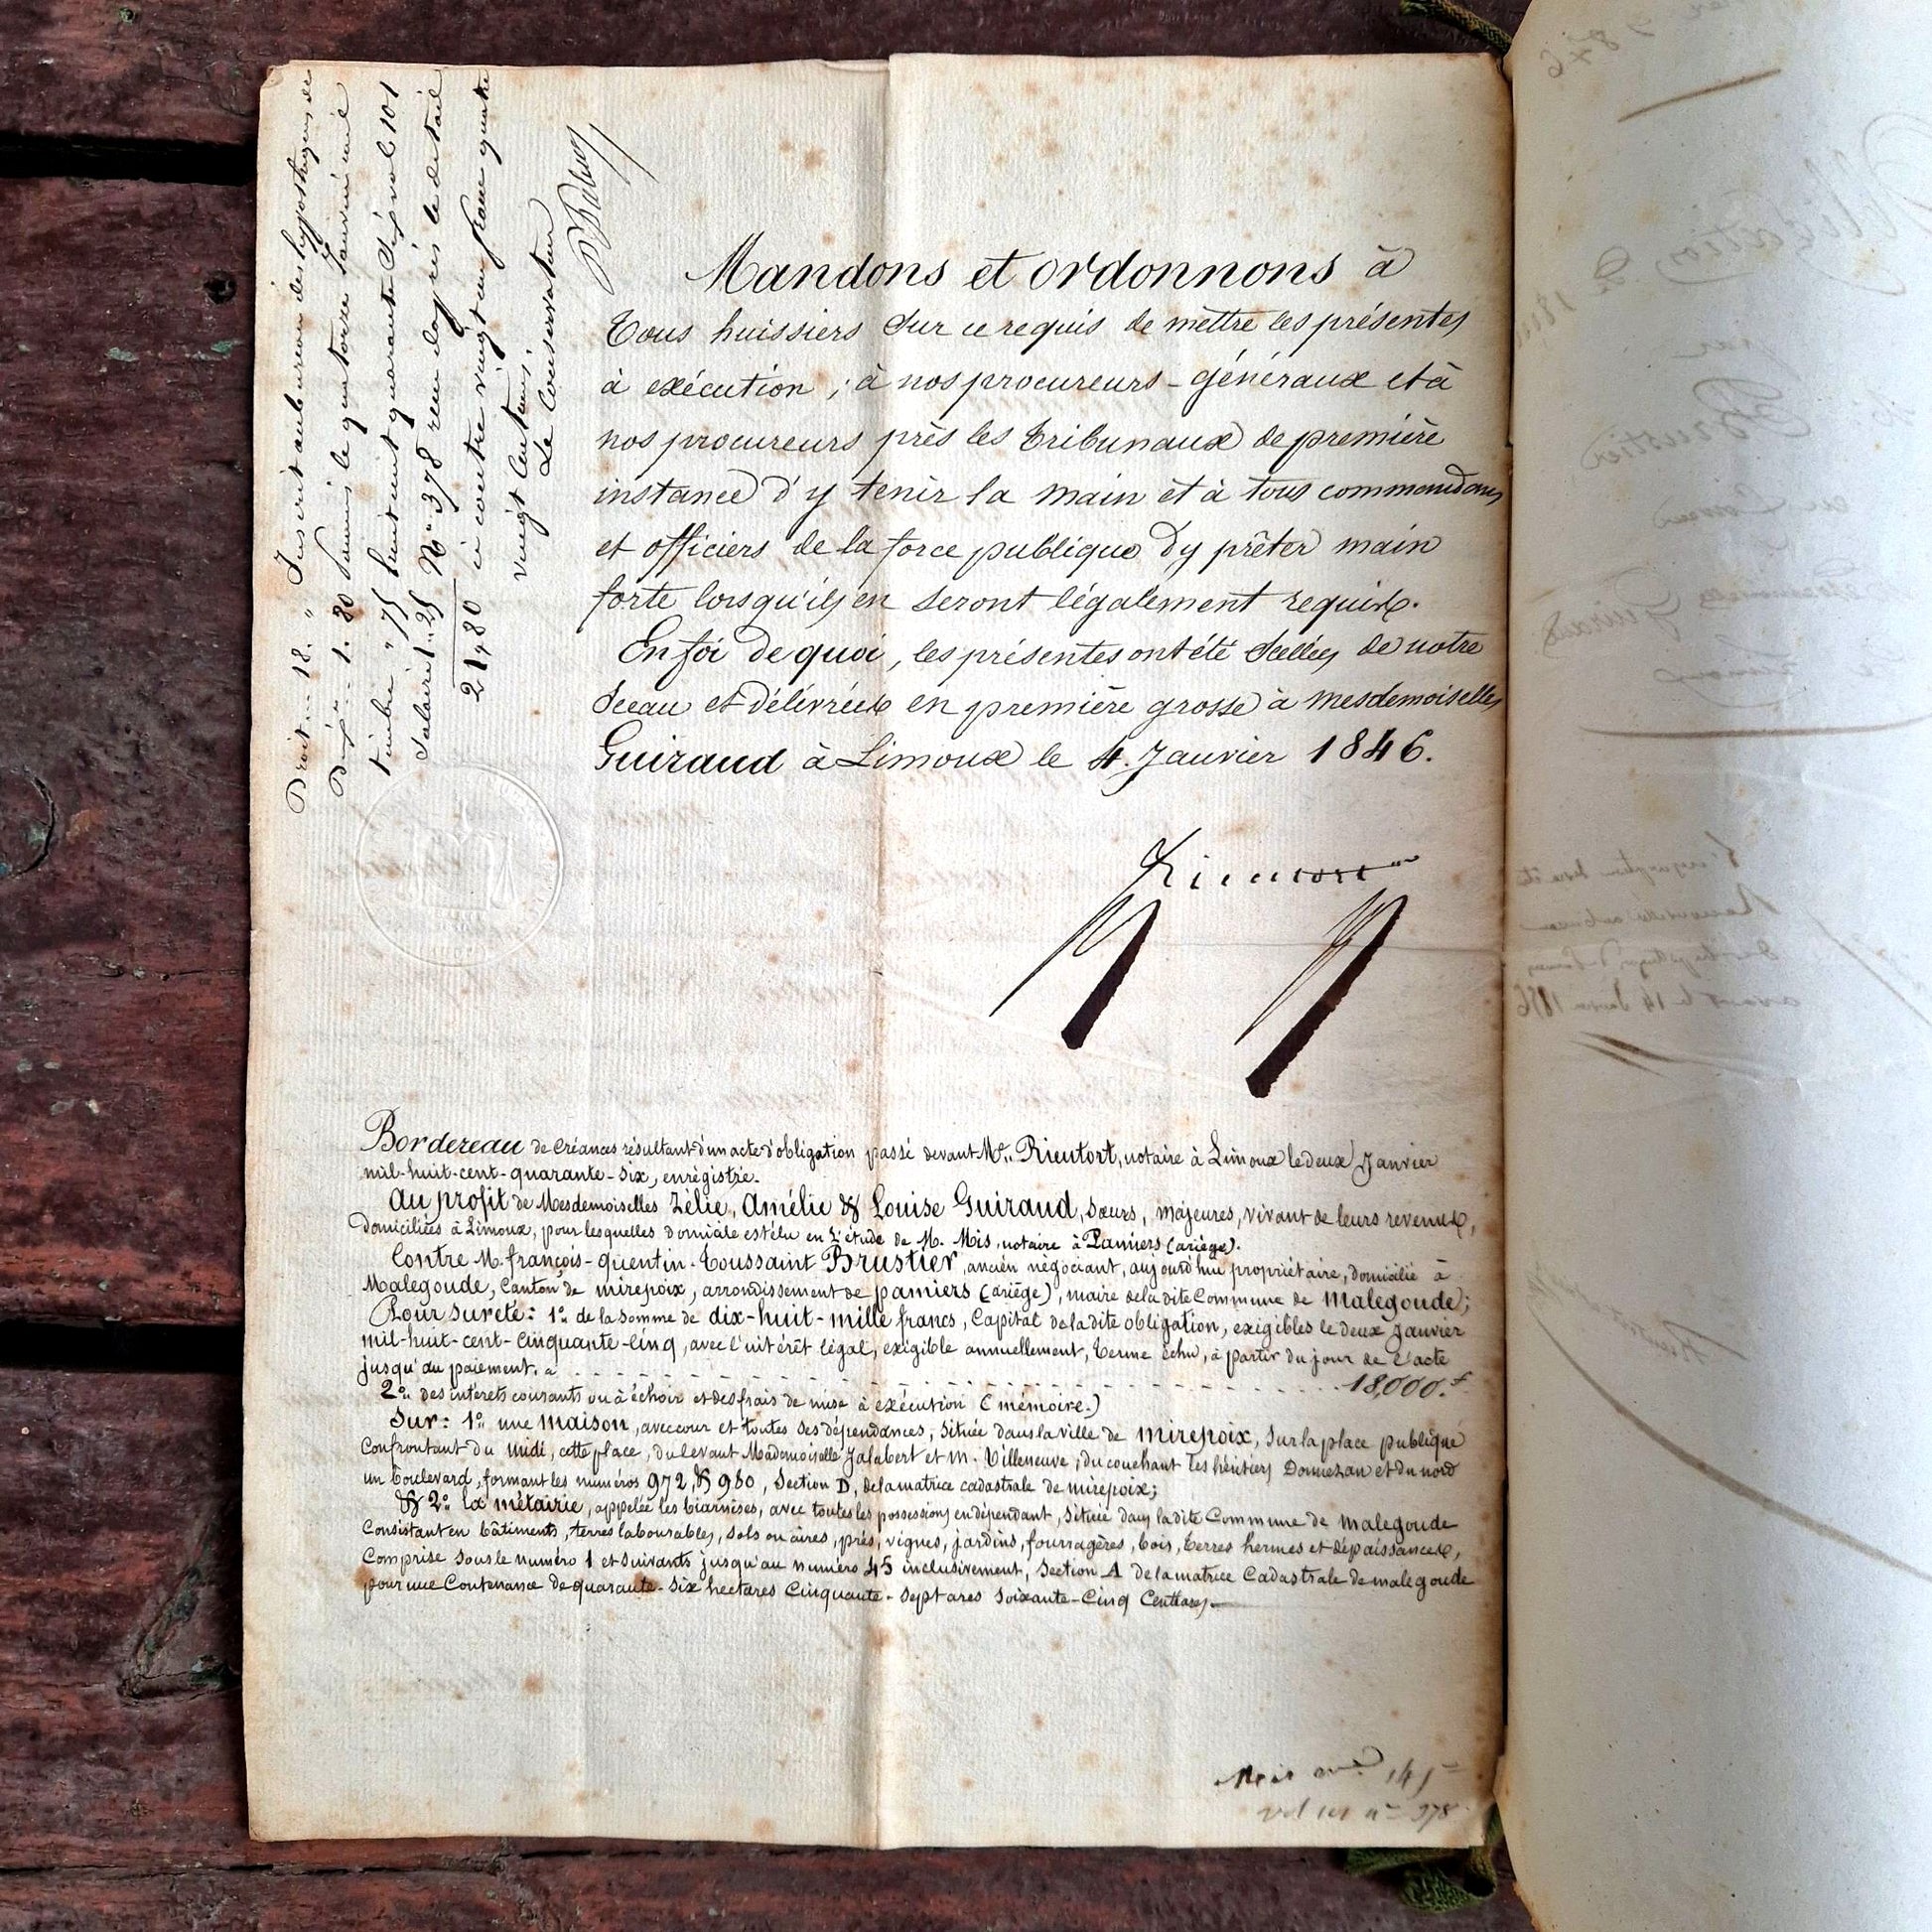 Mandons et ordonnons à
Tous huissiers sur ce requis de mettre les présentes
à exécution ; à nos procureurs-généraux et à
nos procureurs près les tribunaux de première
instance d'y tenir la main et à tous commandans
et officiers de la force publique d'y prêter main
forte lorsqu'ils en seront légalement requis.
En foi de quoi, les présentes ont été scellées de notre
sceau et délivrées en première grosse à mesdemoiselles
Guiraud à Limoux le 4. Janvier 1846.
Rieutort
Droit... 18. " Inscrit au bureau des hypothèques de
1. 80 Pamiers le quatorze Janvier mil
timbre " 75 huit cent quarante six vol. 101
Salaire 1. 25 N° 378 reçu d'après le détail
21,80 ci contre vingt un francs quatre
vingt centimes.
Le Conservateur
Bordereau de Créances résultant d'un acte d'obligation passé devant Me. Rieutort, notaire à Limoux le deux Janvier
mil-huit-cent-quarante-six, enregistré.
Au profit de Mesdemoiselles Zélie, Amélie & Louise Guiraud, sœurs, majeures, vivant de leurs revenus,
domiciliées à Limoux, pour lesquelles domicile est élu en l'étude de M. Mis, notaire à Pamiers (ariège).
Contre M. françois-quentin-Toussaint Brustier, ancien négociant, aujourd'hui propriétaire, domicilié à
Malegoude, Canton de mirepoix, arrondissement de pamiers (ariège), maire de la dite Commune de Malegoude;
Pour sureté: 1° de la somme de dix-huit-mille francs, Capital de la dite obligation, exigibles le deux Janvier
mil-huit-cent-cinquante-cinq, avec l'intérêt légal, exigible annuellement, terme échu, à partir du jour de l'acte
jusqu'au paiement. à . . . . . . . . . . 18,000.f
2° des intérets courants ou à échoir et des frais de mise à exécution (mémoire.)
Sur: 1° une maison, avec cour et toutes ses dépendances, située dans la ville de mirepoix, sur la place publique
Confrontant du midi, cette place, du levant Mademoiselle Jalabert et M. Villeneuve, du couchant les héritiers Donnezan et du nord
un boulevard, formant les numéros 972 & 980, Section D, de la matrice cadastrale de mirepoix;
& 2° la métairie, appelée les biarnises, avec toutes les possessions en dépendant, située dans la dite Commune de Malegoude
Consistant en bâtiments, terres labourables, sols ou aires, prés, vignes, jardins, fourragères, bois, terres hermes et dépaissances,
Comprise sous le numéro 1 et suivants jusqu'au numéro 45 inclusivement, Section A de la matrice Cadastrale de malegoude
pour une Contenance de quarante-six hectares Cinquante-sept ares soixante-Cinq Centiares.
vol 101 n° 378